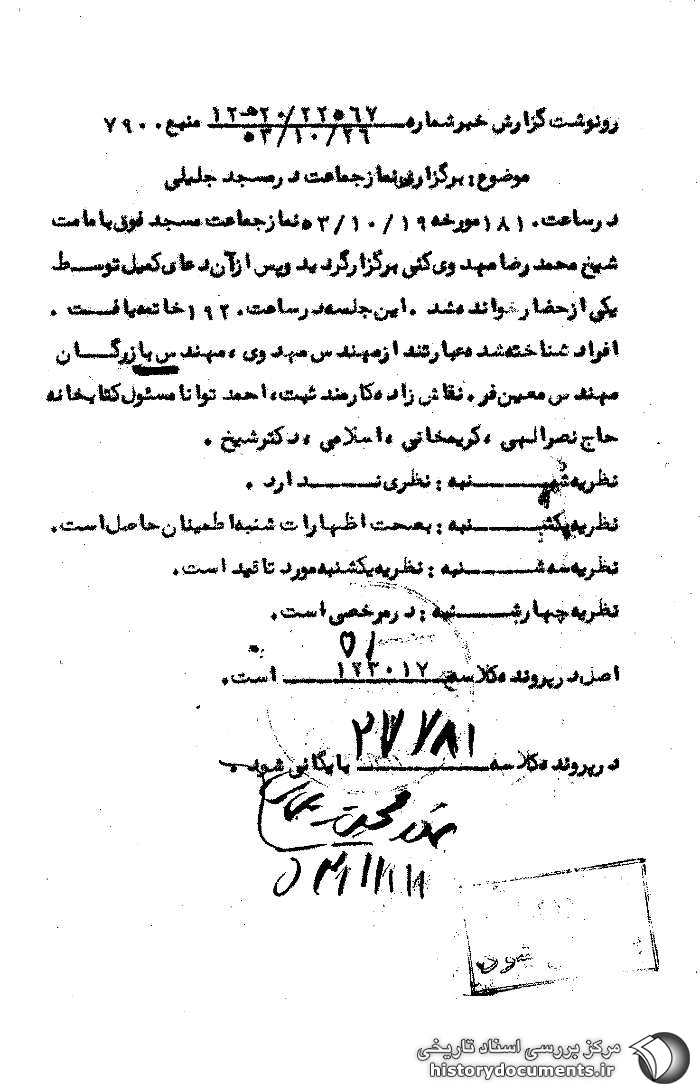 رونوشت گزارش خبر شماره ۲۲۵۶۷/ ۲۰هـ۱۲ منبع ۷۹۰۰
۵۳/۱۰/۲۶
موضوع: برگزاری نماز جماعت در مسجد جلیلی
در ساعت ۱۸۱۰ مورخه ۵۳/۱۰/۱۹ نماز جماعت مسجد فوق با مامت
شیخ محمد رضا مهدوی کنی برگزار گردید و پس از آن دعای کمیل توسط
یکی از حضار خوانده شد . این جلسه در ساعت ۱۹۲۰ خاتمه یافت .
افراد شناخته شده عبارتند از مهندس مهدوی ، مهندس بازرگان
مهندس معین فر . نقاش زاده کارمند ثبت ، احمد توانا مسئول کتابخانه
حاج نصرالهی ، کریمخانی ، اسلامی ، دکتر شیخ .
نظریه شنبه : نظری ندارد .
نظریه یکشنبه : بصحت اظهارات شنبه اطمینان حاصل است .
نظریه سه شنبه : نظریه یکشنبه مورد تائید است .
نظریه چهارشنبه : در مرخصی است .
اصل در پرونده کلاسه ۱۲۳۰۱۷ است .
در پرونده کلاسه ۲۷۷۸۱ بایگانی شود .
شود
مرکز بررسی اسناد تاریخی
historydocuments.ir